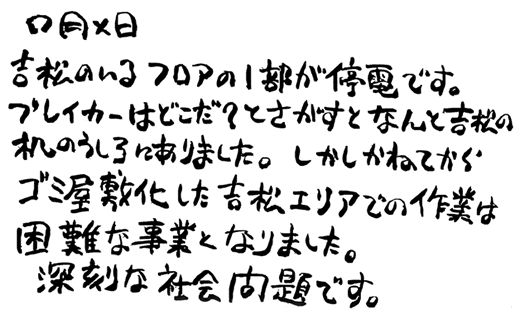 〇月×日
吉松のいるフロアの1部が停電です。
ブレイカーはどこだ?とさがすとなんと吉松の
机のうしろにありました。しかしかねてから
ゴミ屋敷化した吉松エリアでの作業は
困難な事業となりました。
深刻な社会問題です。